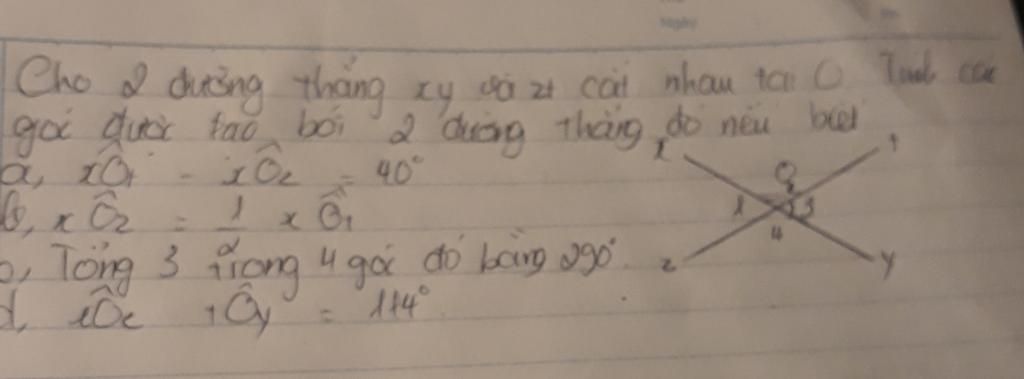 Cho 2 đường thẳng xy và zt cắt nhau tại O Tính các
góc được tạo bởi 2 đường thẳng đó nếu biết
a, xÔ₁ - xÔ₂ = 40°
b, xÔ₂ = 1/2 xÔ₁
c, Tổng 3 trong 4 góc đó bằng 290°
d, Ô Ôy = 114°
x t
O
1 2 3
4
z y